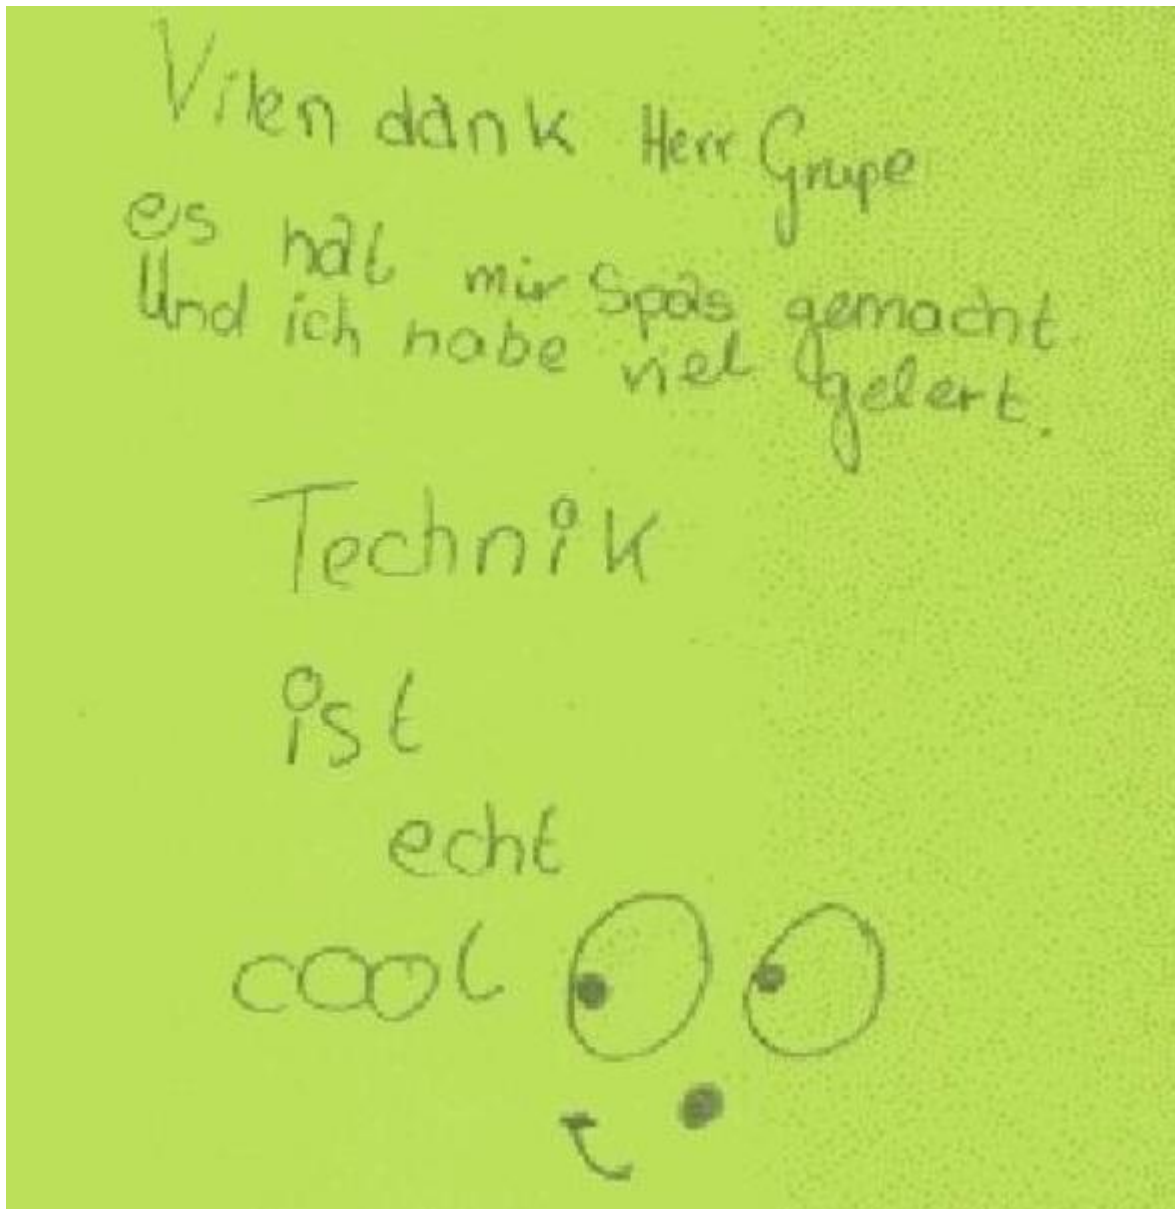 Vilen dank Herr Grupe
es hat mir Spas gemacht.
Und ich habe viel gelert.
Technik
ist
echt
cool